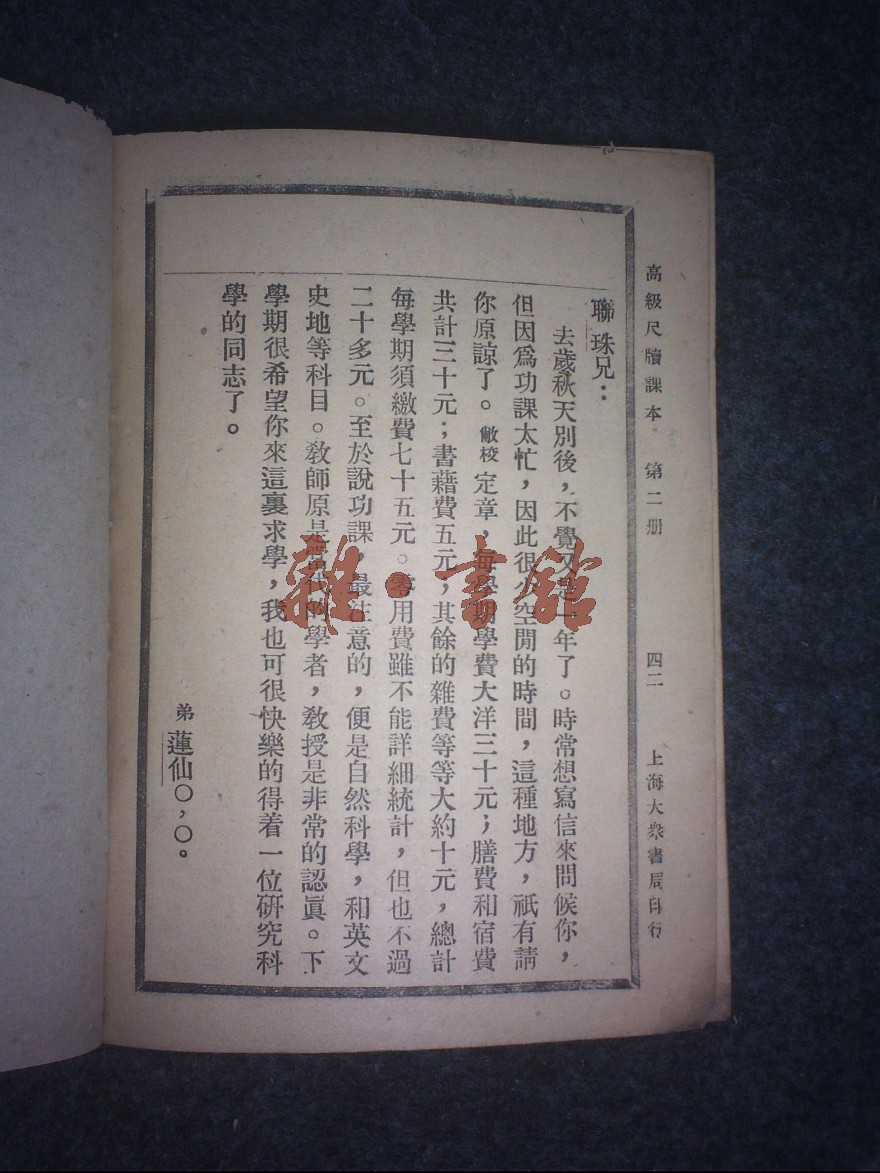 高級尺牘課本 第二册 四二 上海大衆書局印行
聯珠兄：
去歲秋天別後，不覺又是一年了。時常想寫信來問候你，
但因爲功課太忙，因此很少空閒的時間，這種地方，祇有請
你原諒了。敝校定章，每學期學費大洋三十元；膳費和宿費
共計三十元；書藉費五元，其餘的雜費等等大約十元，總計
每學期須繳費七十五元。零用費雖不能詳細統計，但也不過
二十多元。至於說功課，最注意的，便是自然科學，和英文
史地等科目。教師原是當代的學者，教授是非常的認眞。下
學期很希望你來這裏求學，我也可很快樂的得着一位硏究科
學的同志了。
弟蓮仙〇，〇。
雜·書館